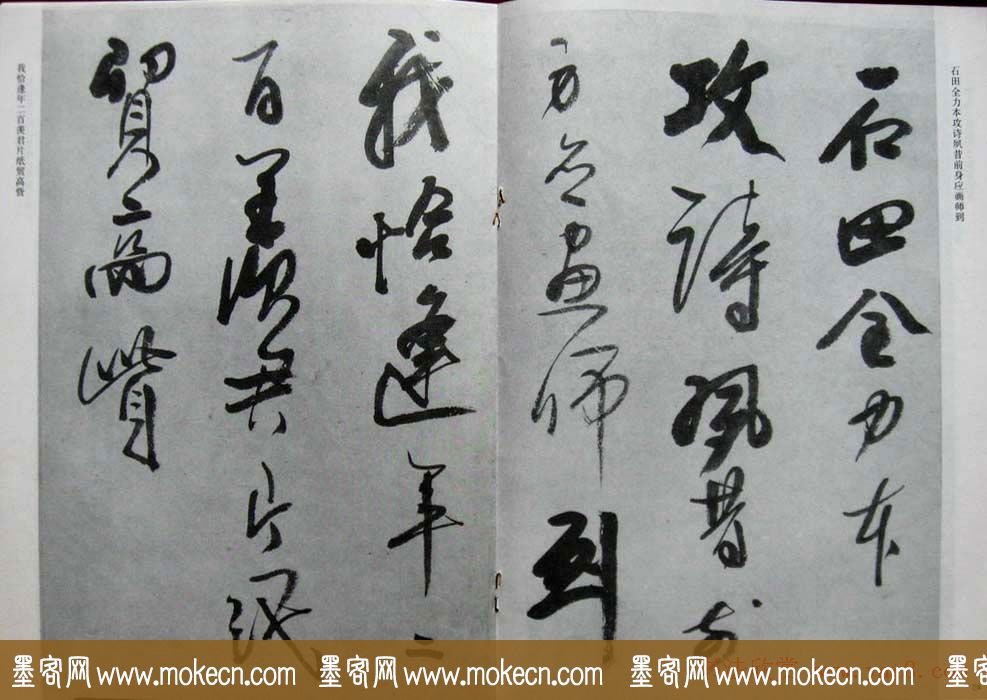 石田全力本攻诗夙昔前身应画师到
石田全力本
攻詩夙昔前
身应画師到
我恰逢年二
百羡君片纸
贸高赀
我恰逢年二百羡君片纸贸高赀
墨客网 www.mokecn.com 墨客网 www.mokecn.com 墨客网 www.mokecn.com 墨客网